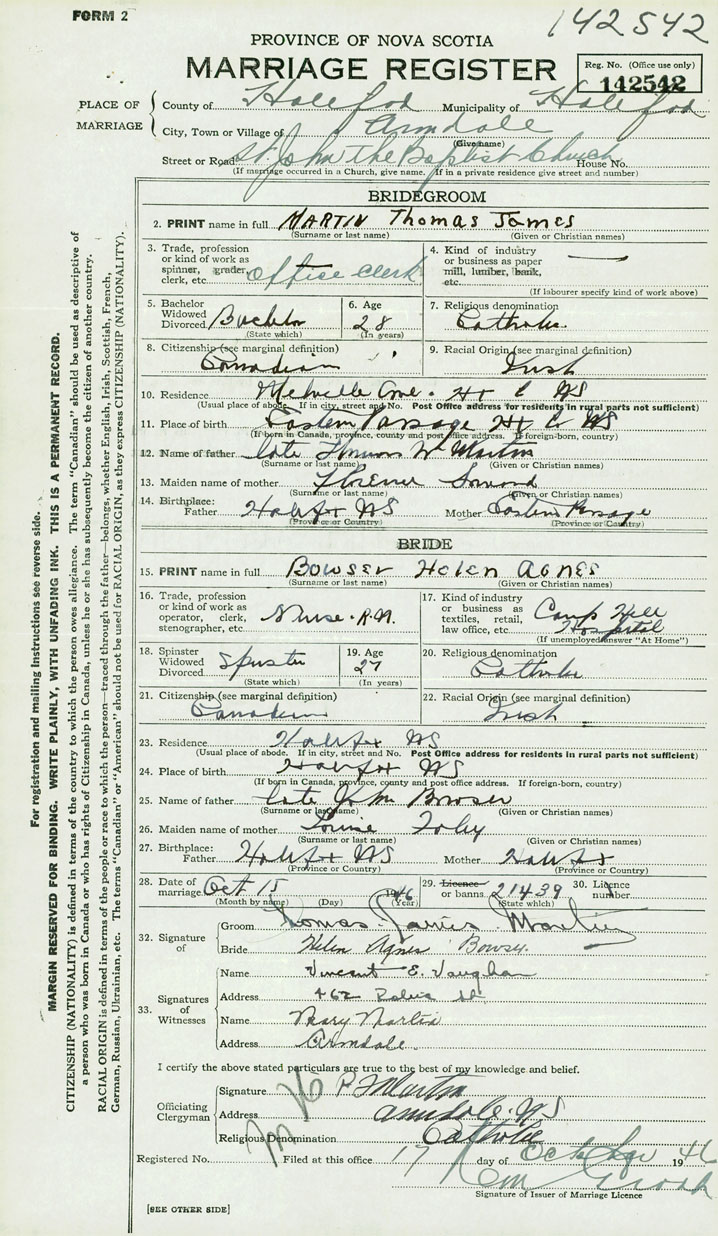 FORM 2
142542
PROVINCE OF NOVA SCOTIA
MARRIAGE REGISTER
Reg. No. (Office use only)
142542
PLACE OF MARRIAGE
County of Halifax Municipality of Halifax
City, Town or Village of Armdale
(Give name)
Street or Road St. John the Baptist Church House No.
(If marriage occurred in a Church, give name. If in a private residence give street and number)
BRIDEGROOM
2. PRINT name in full MARTIN Thomas James
(Surname or last name) (Given or Christian names)
3. Trade, profession or kind of work as spinner, grader, clerk, etc. Office Clerk
4. Kind of industry or business as paper mill, lumber, bank, etc. —
(If labourer specify kind of work above)
5. Bachelor Widowed Divorced Bachelor
(State which)
6. Age 28
(In years)
7. Religious denomination
Catholic
8. Citizenship (see marginal definition)
Canadian
9. Racial Origin (see marginal definition)
Irish
10. Residence Melville Cove. Hx C NS
(Usual place of abode. If in city, street and No. Post Office address for residents in rural parts not sufficient)
11. Place of birth Eastern Passage Hx C NS
(If born in Canada, province, county and post office address. If foreign-born, country)
12. Name of father late Thomas W Martin
(Surname or last name) (Given or Christian names)
13. Maiden name of mother Florence
(Surname or last name) (Given or Christian names)
14. Birthplace:
Father Halifax NS Mother Eastern Passage
(Province or Country) (Province or Country)
BRIDE
15. PRINT name in full BOWSER HELEN AGNES
(Surname or last name) (Given or Christian names)
16. Trade, profession or kind of work as operator, clerk, stenographer, etc. Nurse. R.N.
17. Kind of industry or business as textiles, retail, law office, etc. Camp Hill Hospital
(If unemployed answer "At Home")
18. Spinster Widowed Divorced Spinster
(State which)
19. Age
27
(In years)
20. Religious denomination
Catholic
21. Citizenship (see marginal definition)
Canadian
22. Racial Origin (see marginal definition)
Irish
23. Residence Halifax NS
(Usual place of abode. If in city, street and No. Post Office address for residents in rural parts not sufficient)
24. Place of birth Halifax NS
(If born in Canada, province, county and post office address. If foreign-born, country)
25. Name of father late John Bowser
(Surname or last name) (Given or Christian names)
26. Maiden name of mother Louise Foley
(Surname or last name) (Given or Christian names)
27. Birthplace:
Father Halifax NS Mother Halifax
(Province or Country) (Province or Country)
28. Date of marriage Oct 15 1946
(Month by name) (Day) (Year)
29. Licence or banns 21439
(State which)
30. Licence number
32. Signature of
Groom Thomas James Martin
Bride Helen Agnes Bowser
33. Signatures of Witnesses
Name Vincent E. Vaughan
Address 462 Robie St
Name Mary Martin
Address Armdale
I certify the above stated particulars are true to the best of my knowledge and belief.
Officiating Clergyman
Signature Martin
Address Armdale. NS
Religious Denomination Catholic
Registered No. Filed at this office 17 day of October 1946
Signature of Issuer of Marriage Licence
[SEE OTHER SIDE]
For registration and mailing instructions see reverse side.
MARGIN RESERVED FOR BINDING. WRITE PLAINLY, WITH UNFADING INK. THIS IS A PERMANENT RECORD.
CITIZENSHIP (NATIONALITY) is defined in terms of the country to which the person owes allegiance. The term "Canadian" should be used as descriptive of
a person who was born in Canada or who has rights of Citizenship in Canada, unless he or she has subsequently become the citizen of another country.
RACIAL ORIGIN is defined in terms of the people or race to which the person—traced through the father—belongs, whether English, Irish, Scottish, French,
German, Russian, Ukrainian, etc. The terms "Canadian" or "American" should not be used for RACIAL ORIGIN, as they express CITIZENSHIP (NATIONALITY).